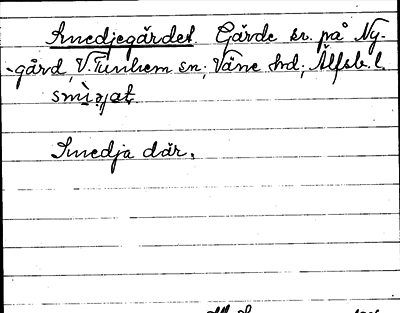 Smedjegärdet Gärde sr. på Ny-
-gård, V. Tunhem sn; Väne hd; Älfsb. l.
Smedja där.